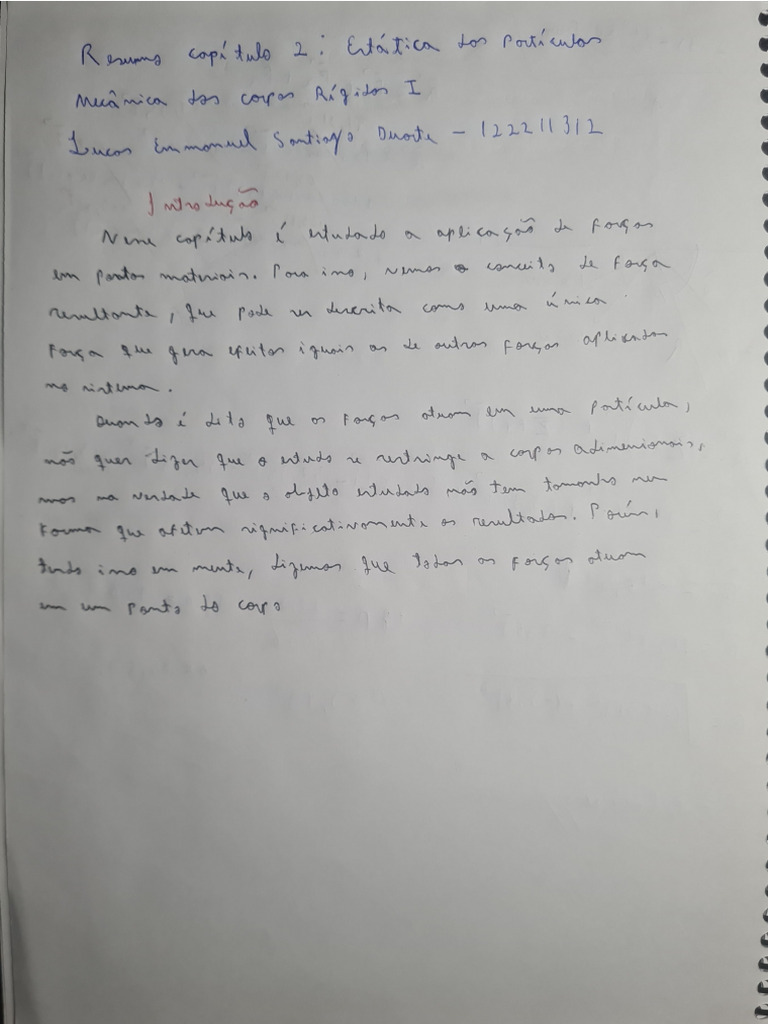 Resumo capítulo 2: Estática das Partículas
Mecânica dos corpos Rígidos I
Lucas Emmanuel Santiago Duarte - 122211312
Introdução
Nesse capítulo é estudado a aplicação de forças
em pontos materiais. Para isso, vemos o conceito de força
resultante, que pode ser descrita como uma única
força que gera efeitos iguais as de outras forças aplicadas
no sistema.
Quando é dito que as forças atuam em uma partícula,
não quer dizer que o estudo se restringe a corpos adimensionais,
mas na verdade que o objeto estudado não tem tamanho nem
forma que afetem significativamente os resultados. Porém,
tendo isso em mente, dizemos que todas as forças atuam
em um ponto do corpo